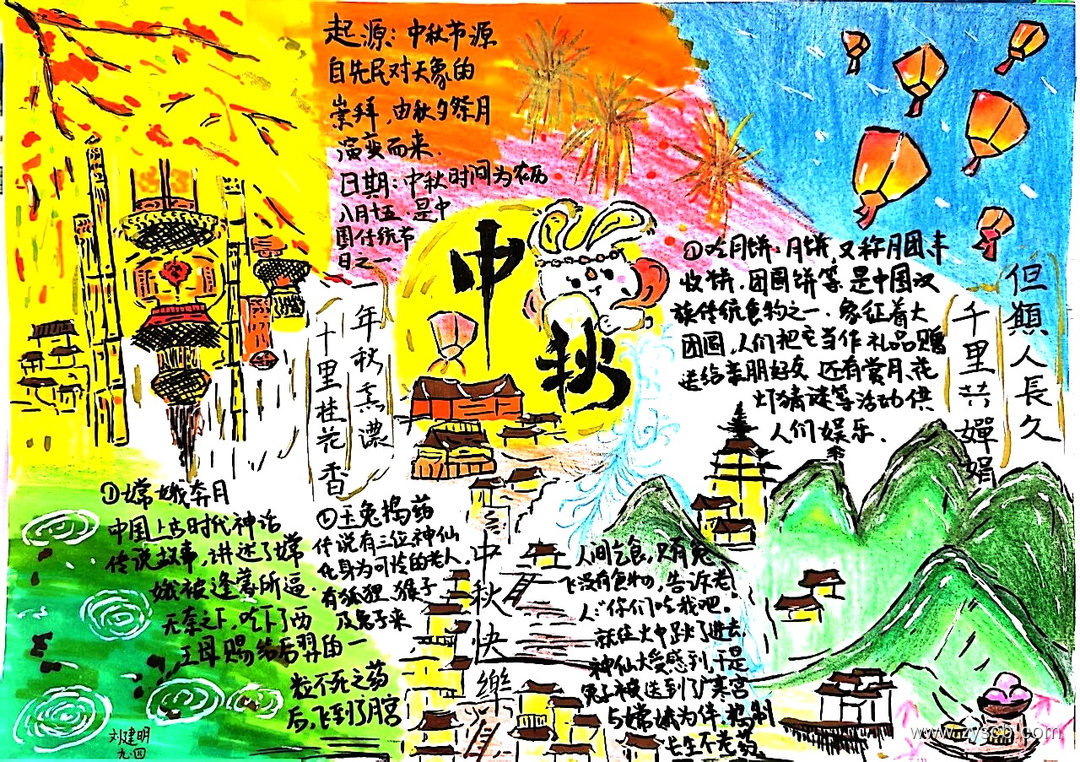 起源:中秋节源
自先民对天象的
崇拜,由秋夕祭月
演变而来.
日期:中秋时间为农历
八月十五.是中
国传统节
日之一
中秋
①吃月饼.月饼,又称月团、丰
收饼、团圆饼等,是中国汉
族传统食物之一.象征着大
团圆,人们把它当作礼品赠
送给亲朋好友,还有赏月、花
灯猜谜等活动供
人们娱乐.
但願人長久
千里共嬋娟
年秋意濃
十里桂花香
①嫦娥奔月
中国上古时代神话
传说故事,讲述了嫦
娥被逢蒙所逼.
无奈之下,吃下了西
王母赐给后羿的一
粒不死之药
后,飞到了月宫
①玉兔捣药
传说有三位神仙
化身为可怜的老人,
有狐狸、猴子
及兔子来
中秋快樂
人间乞食,只有兔
飞没有食物,告诉老
人:"你们吃我吧。
就往火中跳了进去,
神仙大受感到,于是
兔子被送到了广寒宫
与嫦娥为伴,捣制
长生不老药
刘建明
九.四